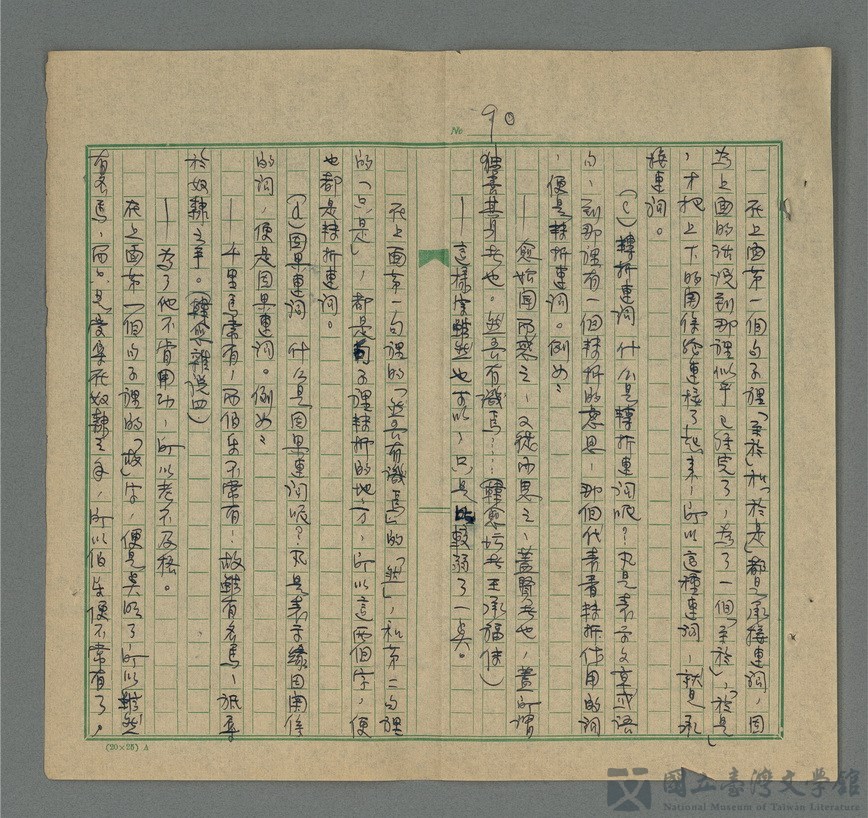 № 90
在上面第一個句子裡「至於」和「於是」都是承接連詞，因
為上面的話說到那裡似乎已講完了，為了一個「至於」，「於是」
，才把上下的關係給連接了起來，所以這種連詞，就是承
接連詞。
(c)轉折連詞 什么是轉折連詞呢？凡是表示文章或語
句，到那裡有一個轉折的意思，那個代表着轉折作用的詞
，便是轉折連詞。例如：
— 愈始聞而惑之，又從而思之，蓋賢者也，蓋所謂
獨善其身者也。然吾有譏焉……（韓愈圬者王承福傳）
— 這樣字雖然也可以，只是比較弱了一點。
在上面第一句裡的「然吾有譏焉」的「然」，和第二句裡
的「只是」，都是句子裡轉折的地方，所以這兩個字，便
也都是轉折連詞。
(d)因果連詞 什么是因果連詞呢？凡是表示緣因關係
的詞，便是因果連詞。例如：
— 千里馬常有，而伯樂不常有，故雖有名馬，祇辱
於奴隸之手。（韓愈雜說四）
— 為了他不肯用功，所以考不及格。
在上面第一個句子裡的「故」字，便是與明了，所以雖然
有名馬，而只是受辱在奴隸之手，所以伯樂便不常有了。
(20×25) A
國立臺灣文學館
National Museum of Taiwan Literature